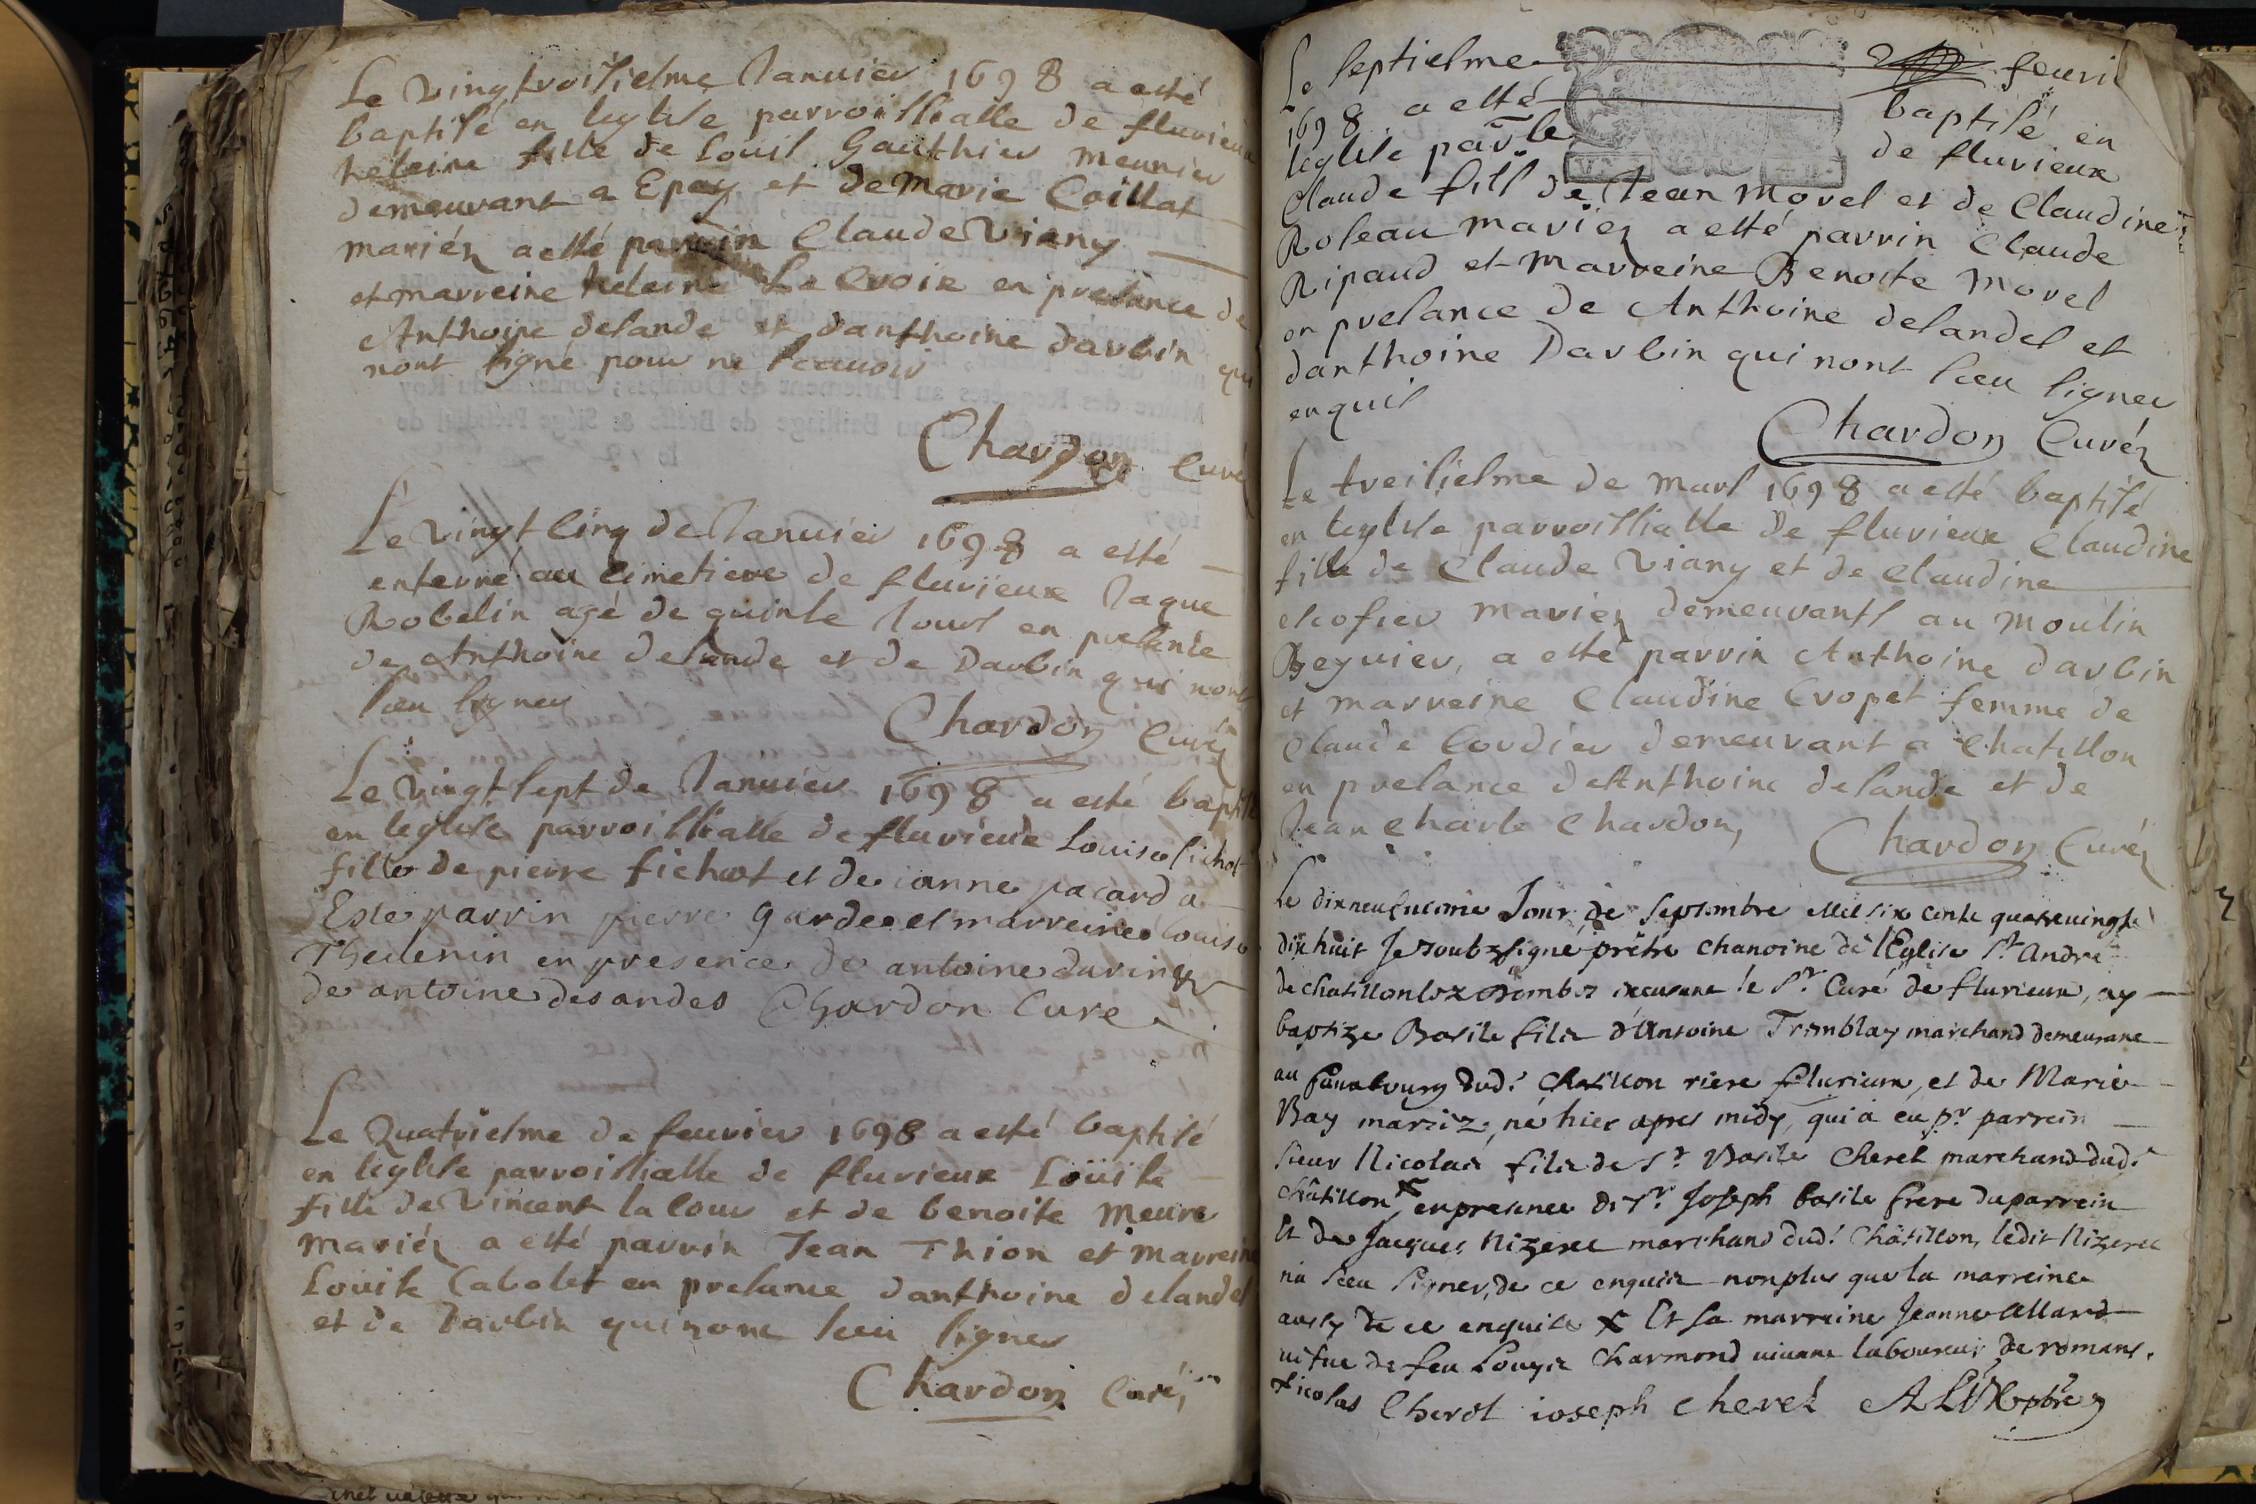 Le vingtroisiesme Januier 1698 a esté
baptisé en leglise parroissialle de flurieux
heleine fille de Louis Gauthier meunier
demeurant a Epey et de Marie Coillat
mariéz a esté parrin Claude Viany
et marreine heleine Le Croix en presance de
Anthoine desande et danthoine darbin qui
nont signé pour ne scauoir
Chardon Curé
Le vingt cinq de Januier 1698 a esté
enterré au cimetiere de flurieux Jaque
Robelin agé de quinse Jours en presence
de Anthoine desande et de Darbin qui nont
sceu signer
Chardon Curéz
Le vingt sept de Januier 1698 a esté baptisé
en leglise parroissialle de flurieux Louise fichot
fille de pierre fichot et de ianne pacard a
Esté parrin pierre garde et marreine Louise
Thevenin en presence de antoine darin et
de antoine desandes Chardon Cure
Le Quatriesme de feurier 1698 a esté baptisé
en leglise parroissialle de flurieux Loüise
fille de Vincent la cour et de benoite meure
mariéz a esté parrin Jean Thion et marreine
Louise Cabolet en presance danthoine desandes
et de Darbin qui nont sceu signer
Chardon Curéz
Le septiesme feuri
1698 a esté baptisé en
leglise par^le de flurieux
Claude fils de Jean Morel et de Claudine
Roleau mariez a esté parrin Claude
Ripaud et marreine Benoite Morel
en presance de Anthoine desandes et
danthoine Darbin qui nont sceu signer
enquis
Chardon Curéz
Le treisiesme de mars 1698 a esté baptisé
en leglise parroissialle de flurieux Claudine
fille de Claude Viany et de claudine
escofier mariez demeurants au moulin
Beyuier, a esté parrin Anthoine darbin
et marreine Claudine Cropet femme de
Claude Cordier demeurant a Chatillon
en presance deAnthoine desande et de
Jean Charle Chardon,
Chardon Curéz
Le dixneufuieme Jour de Septembre Mil six cents quatreuingt
dix huit Je soubzsigné prêtre chanoine de l'Eglise S^t André
de chatillonlez dombes excusant le S^r Curé de flurieux, ay
baptize Basile filz d'Antoine Tremblay marchand demeurant
au fauxbourg dud^t Chatillon riere flurieux, et de Marie
Bay mariez, né hier apres midy, qui a eu p^r parrein
sieur Nicolas filz de S^r Basile Cheret marchand dud^t
Châtillon X en presence de S^r Joseph basile frere du parrein
Et de Jacques Nizeret marchand dud^t Châtillon, ledit Nizeret
na sceu signer, de ce enquis nonplus que la marreine
aussy de ce enquise X Et sa marraine Jeanne Allard
uefue de feu Louys Charmond uiuant laboureur de romans.
Nicolas Cheret ioseph cheret